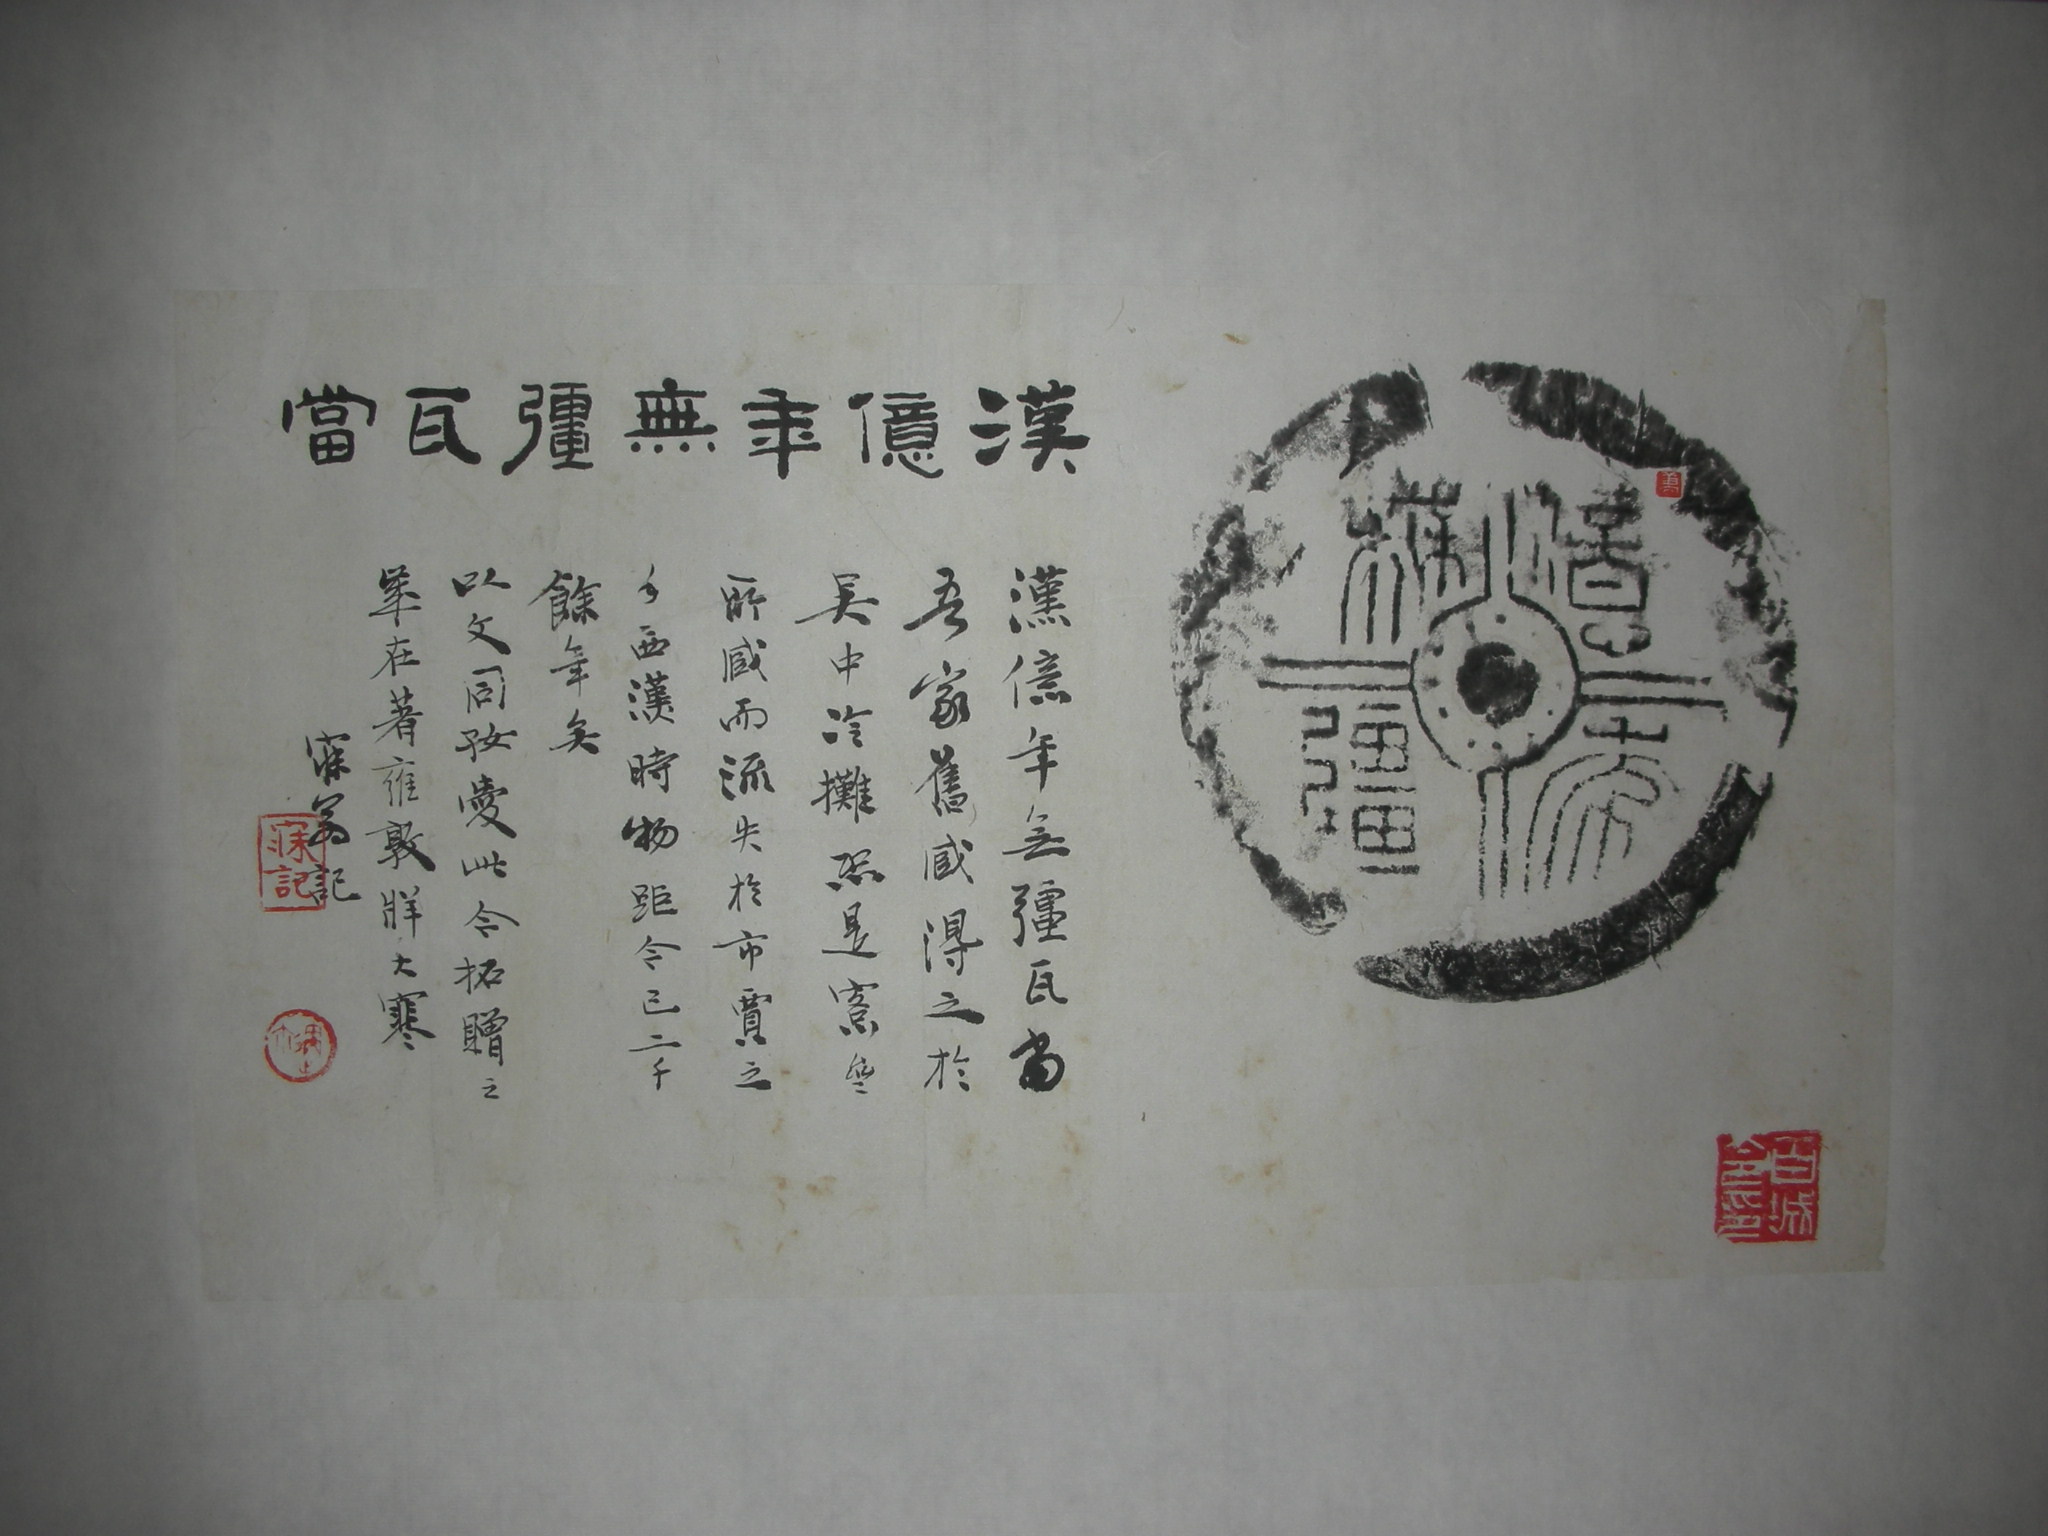 漢億年無疆瓦當
漢億年無疆瓦當
吾家舊臧得之於
吳中冷攤恐是窓齋
所臧而流失於市賈之
手西漢時物距今已二千
餘年矣
以文同孜愛此令拓贈之
歲在著雍敦牂大寒
寐翁記
寐記
億年無疆